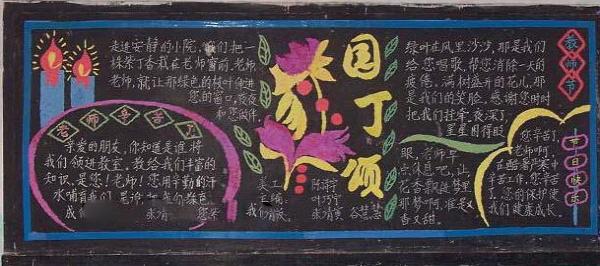 走进安静的小院,我们把一
株紫丁香栽在老师窗前,老师
老师,就让那绿色的枝叶伸进
您的窗口,夜夜
和您做伴。
老师辛苦了
亲爱的朋友,你知道是谁将
我们领进教室,教给我们丰富的
知识,是您!老师!您用辛勤的汗
水哺育我们
园丁颂
美工
主编
绿叶在风里沙沙,那是我们
给您唱歌,帮您消除一天的
疲倦。满树盛开的花儿,那
是我们的笑脸,感谢您时时
把我们挂牵。夜深了,
星星困得眨
眼,老师早
点休息吧,让
花香飘进梦里
那梦啊,准是又
香又甜。
教师节
节日快乐
您辛苦了,
老师啊,
在酷暑严寒中
辛苦工作,您辛苦
了,您的保护使
我们健康成长。